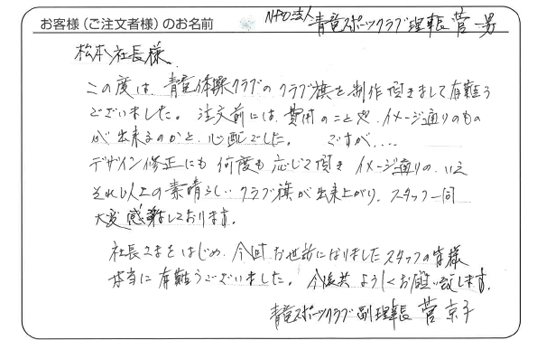 お客様(ご注文者様)のお名前
NPO法人 青竜スポーツクラブ理事長 菅 一男
松本社長様
この度は、青竜体操クラブのクラブ旗を制作頂きまして有難う
ございました。注文前には、費用のことや、イメージ通りのもの
が出来るのかと、心配でした。 ですが、...
デザイン修正にも何度も応じて頂きイメージ通りの、いえ
それ以上の素晴らしいクラブ旗が出来上がり、スタッフ一同
大変感謝しております。
社長さまをはじめ、今回お世話になりましたスタッフの皆様
本当に有難うございました。今後共よろしくお願い致します。
青竜スポーツクラブ副理事長 菅 京子